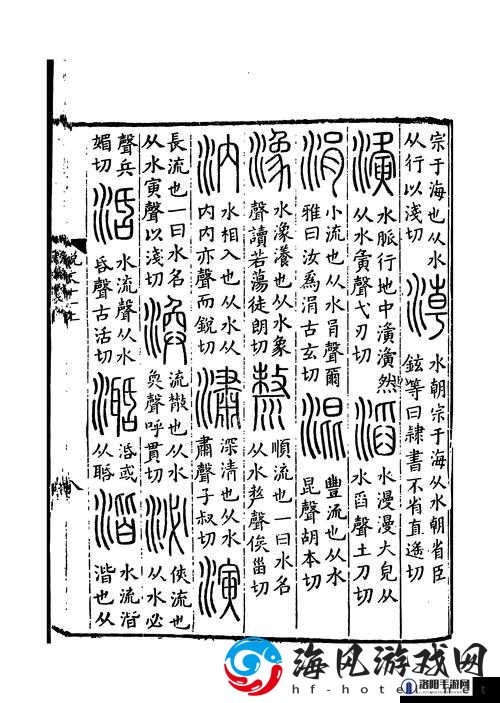 宗于海也从水
从行以淺切
淖
水朝宗于海从水朝省臣
鉉等曰隸書不省直遙切
濥
水脈行地中濥濥然
从水夤聲弋刃切
滔
水漫漫大皃从
水舀聲土刀切
涓
小流也从水肙聲爾
雅曰汝爲涓古玄切
混
豐流也从水
昆聲胡本切
潒
水潒瀁也从水象
聲讀若蕩徒朗切
漦
順流也一曰水名
从水𠩺聲俟甾切
汭
水相入也从水从
内内亦聲而銳切
潚
深清也从水
肅聲子叔切
演
長流也一曰水名
从水寅聲以淺切
渙
流散也从水
奐聲呼貫切
泌
俠流也
从水必
聲兵
媚切
活
水流聲从水
昏聲古活切
㵧
活或
从聒
湝
水流湝
湝也从
海风游戏网
hf-hotel.net
洛阳手游网